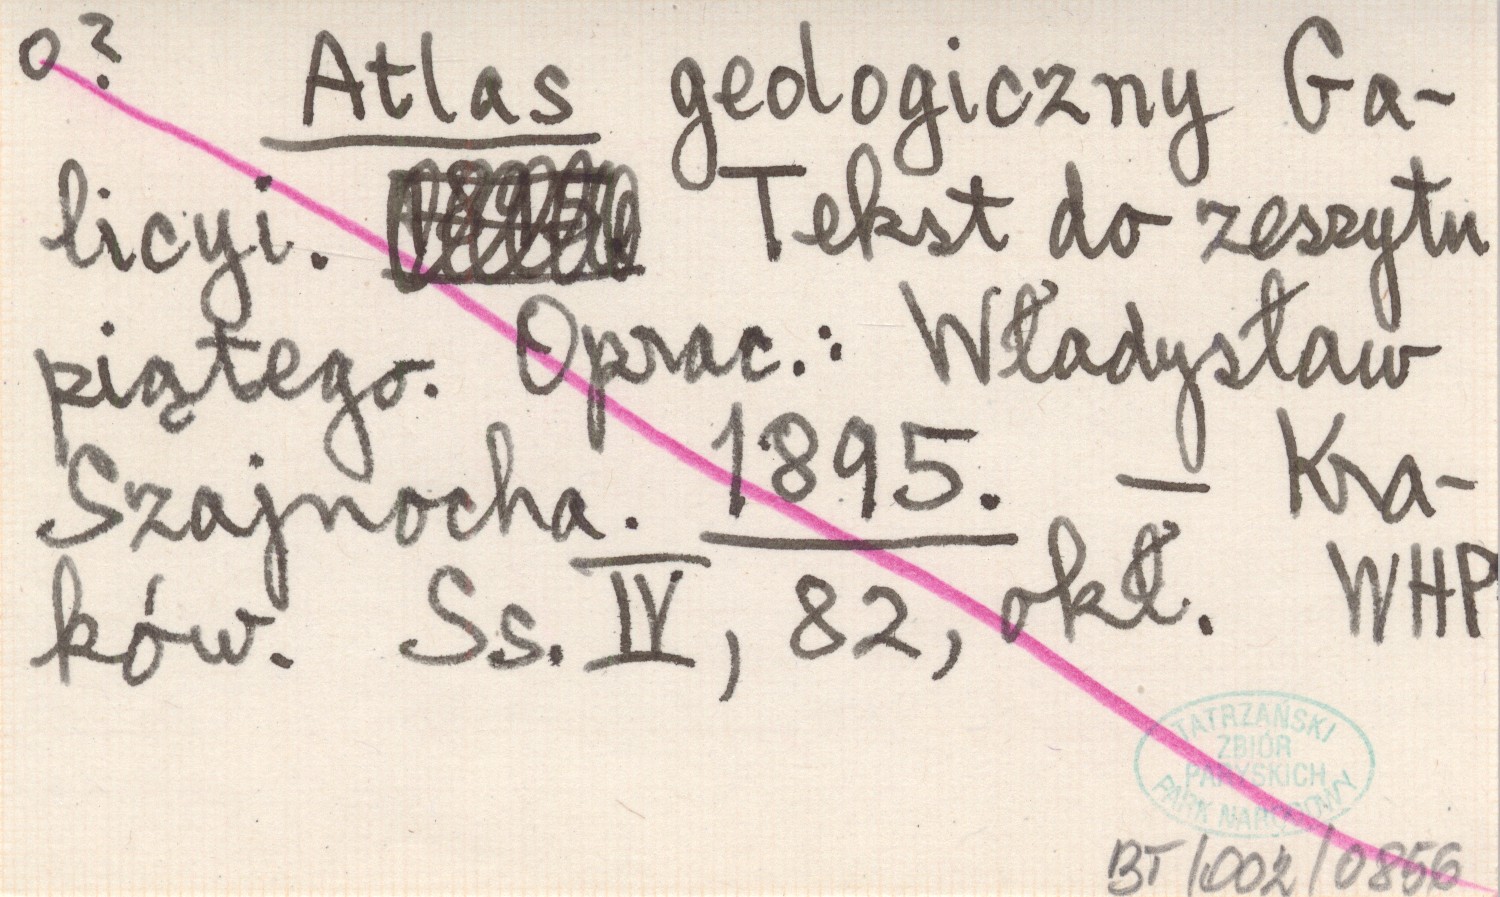 o?
Atlas geologiczny Ga-
licyi. Tekst do zeszytu
piątego. Oprac.: Władysław
Szajnocha. 1895. — Kra-
ków. Ss. IV, 82, okł. WHP
TATRZAŃSKI
ZBIÓR
PARYSKICH
PARK NARODOWY
BT/002/0856